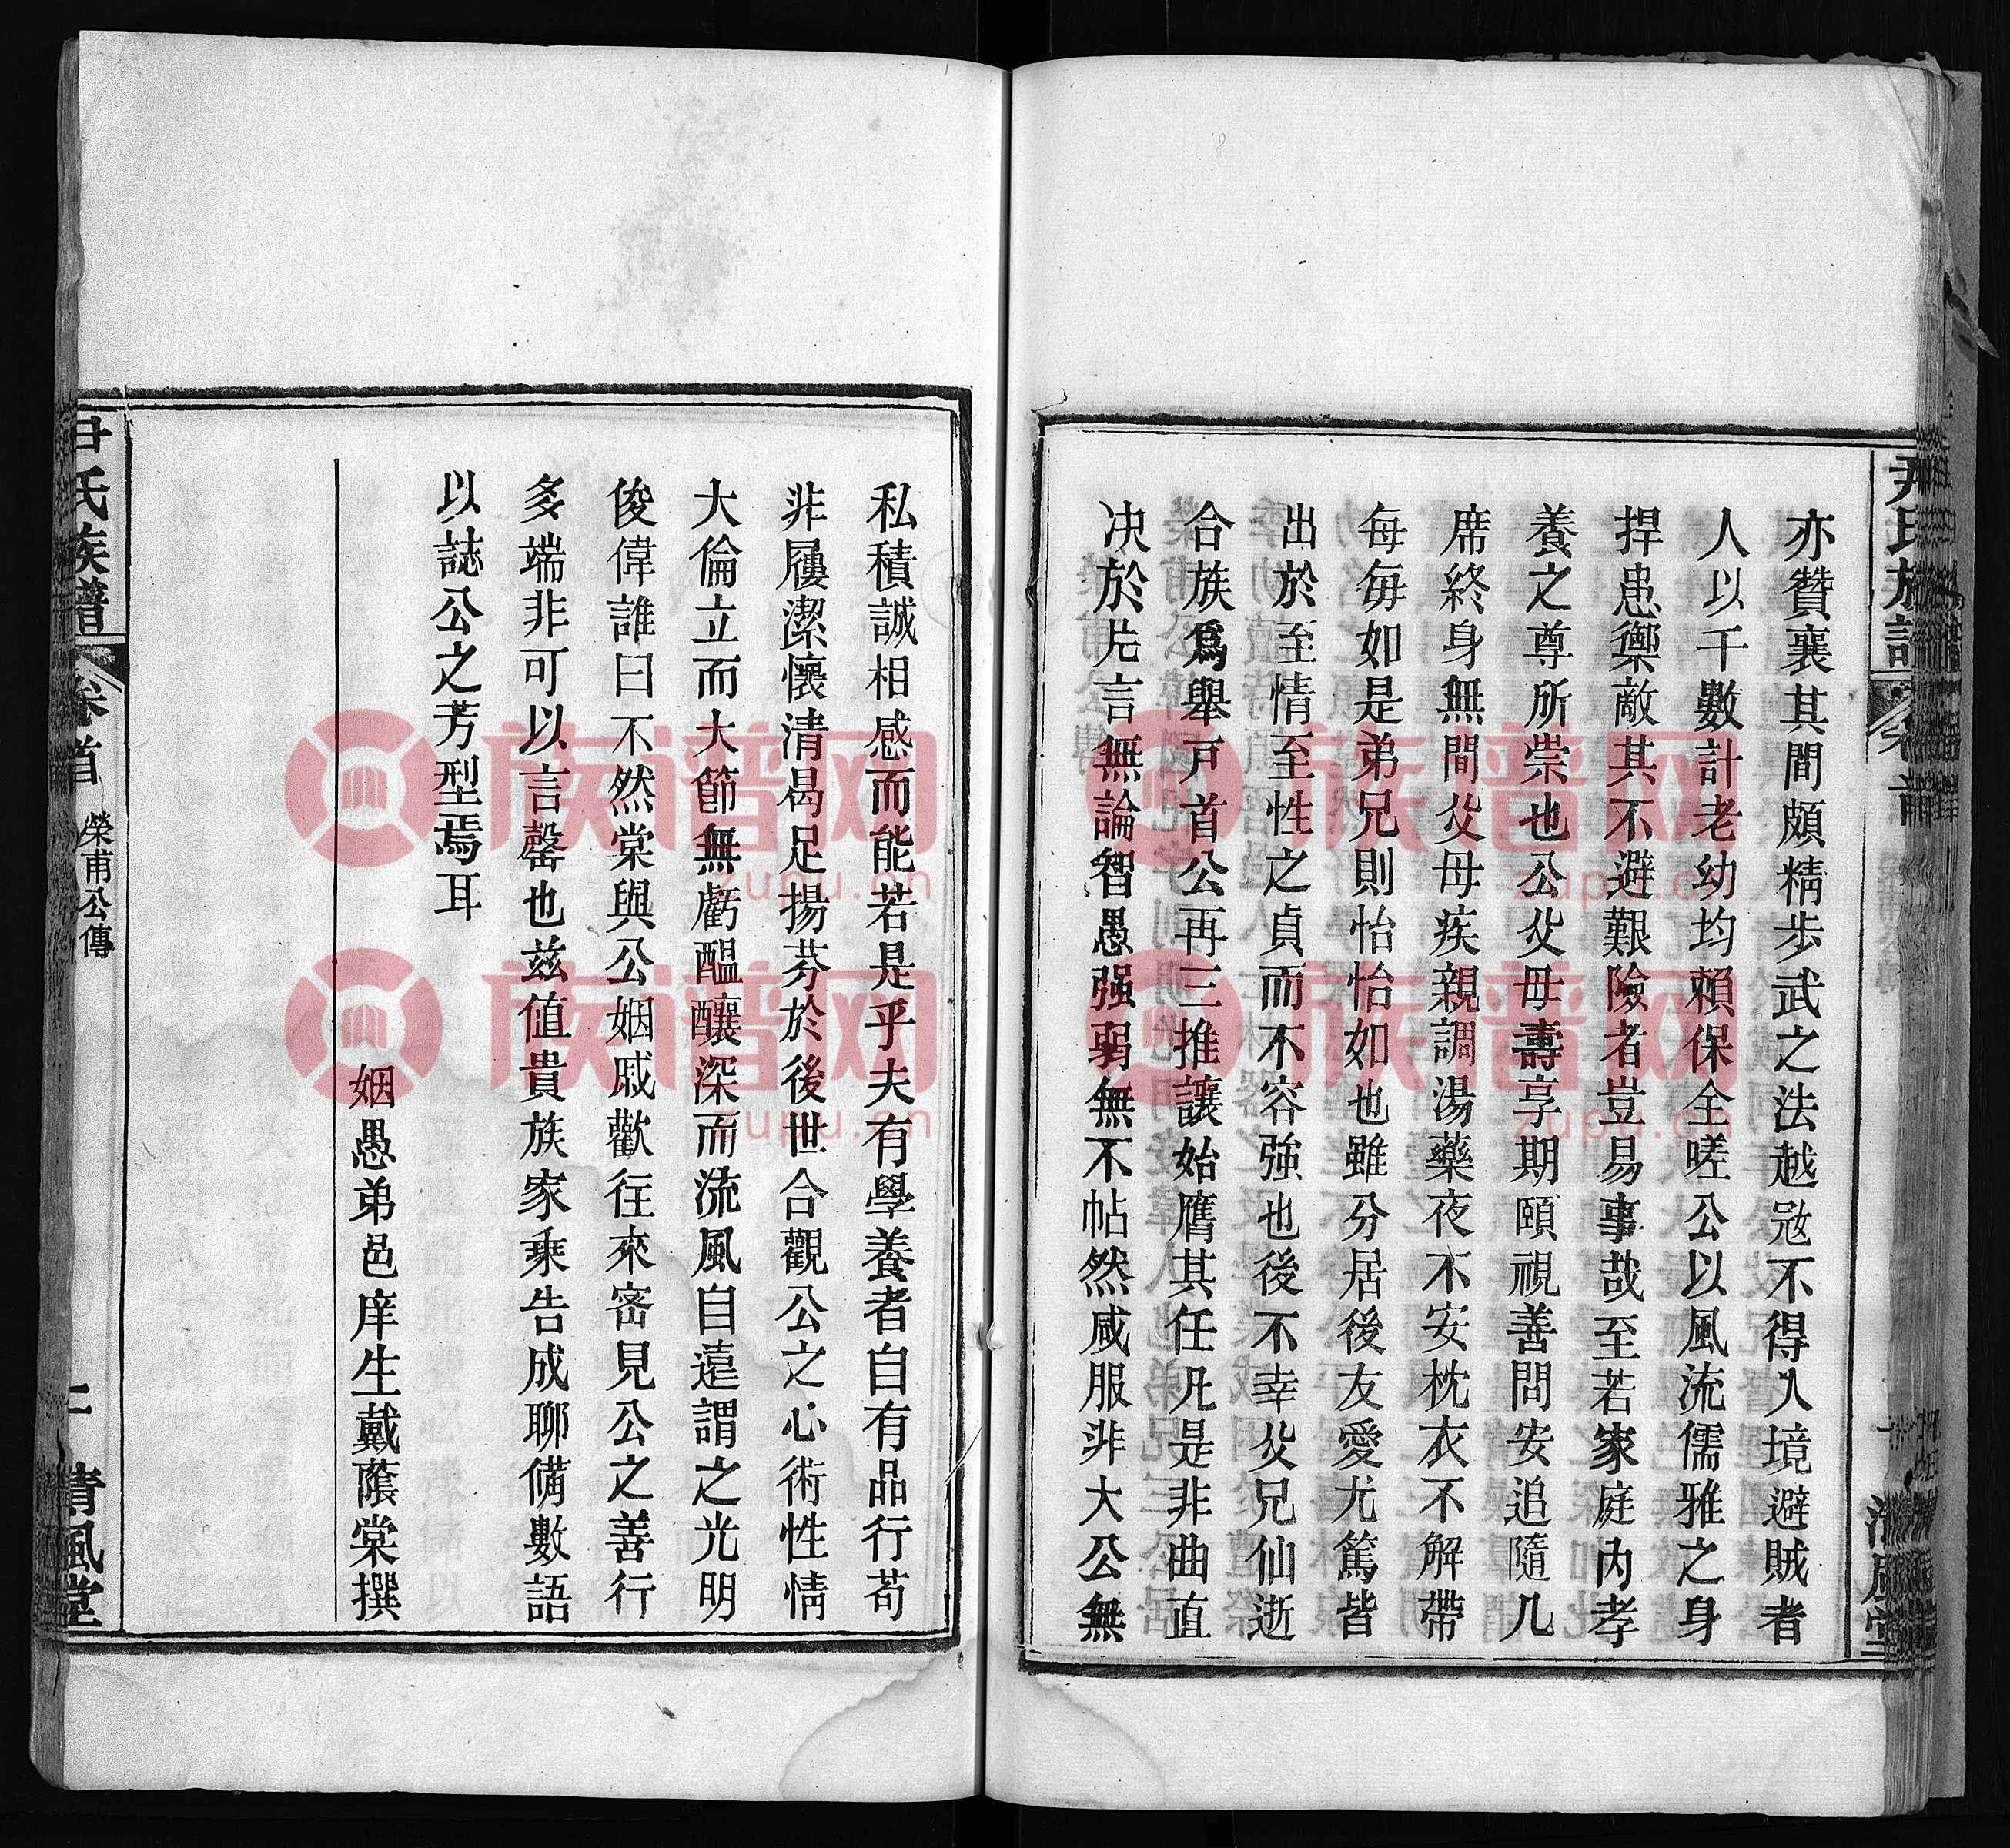 尹氏族譜
卷首
清風堂
亦贊襄其間頗精步武之法越㓂不得入境避賊者
人以千數計老幼均賴保全嗟公以風流儒雅之身
捍患禦敵其不避艱險者豈易事哉至若家庭內孝
養之尊所崇也公父母壽享期頤視善問安追隨几
席終身無間父母疾親調湯藥夜不安枕衣不解帶
每每如是弟兄則怡怡如也雖分居後友愛尤篤皆
出於至情至性之貞而不容強也後不幸父兄仙逝
合族爲舉戶首公再三推讓始膺其任凡是非曲直
决於片言無論智愚强弱無不帖然咸服非大公無
私積誠相感而能若是乎夫有學養者自有品行苟
非履潔懷清曷足揚芬於後世合觀公之心術性情
大倫立而大節無虧醞釀深而流風自遠謂之光明
俊偉誰曰不然棠與公姻戚歡往來密見公之善行
多端非可以言罄也兹值貴族家乘告成聊備數語
以誌公之芳型焉耳
姻愚弟邑庠生戴蔭棠撰
尹氏族譜
卷首
榮甫公傳
二
清風堂
族谱网
zupu.cn
族谱网
zupu.cn
族谱网
zupu.cn
族谱网
zupu.cn